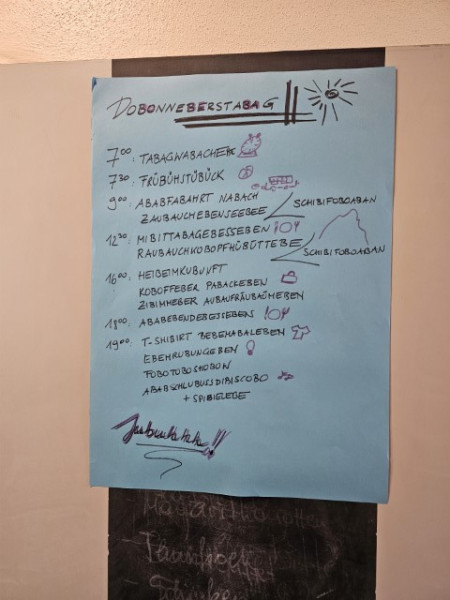 DOBONNEBERSTABAG !!
7⁰⁰: TABAGWABACHEBE
7³⁰: FRÜBÜHSTÜBÜCK
9⁰⁰: ABABFABAHRT NABACH
ZAUBAUCHEBENSEEBEE
SCHIBIFOBOABAN
12³⁰: MIBITTABAGEBESSEBEN
RAUBAUCHKOBOPFHÜBÜTTEBE
SCHIBIFOBOABAN
16⁰⁰: HEIBEIMKUBUVFT
KOBOFFEBER PABACKEBEN
ZIBIMMEBER AUBAUFRÄUBÄUMEBEN
18⁰⁰: ABABEBENDEBESSEBENS
19⁰⁰: T-SHIBIRT BEBEMABALEBEN
EBEHRUBUNGEBEN
FOBOTOBOSHOBOW
ABABSCHLUBUSSDIBISCOBO
+ SPIBIELEBE